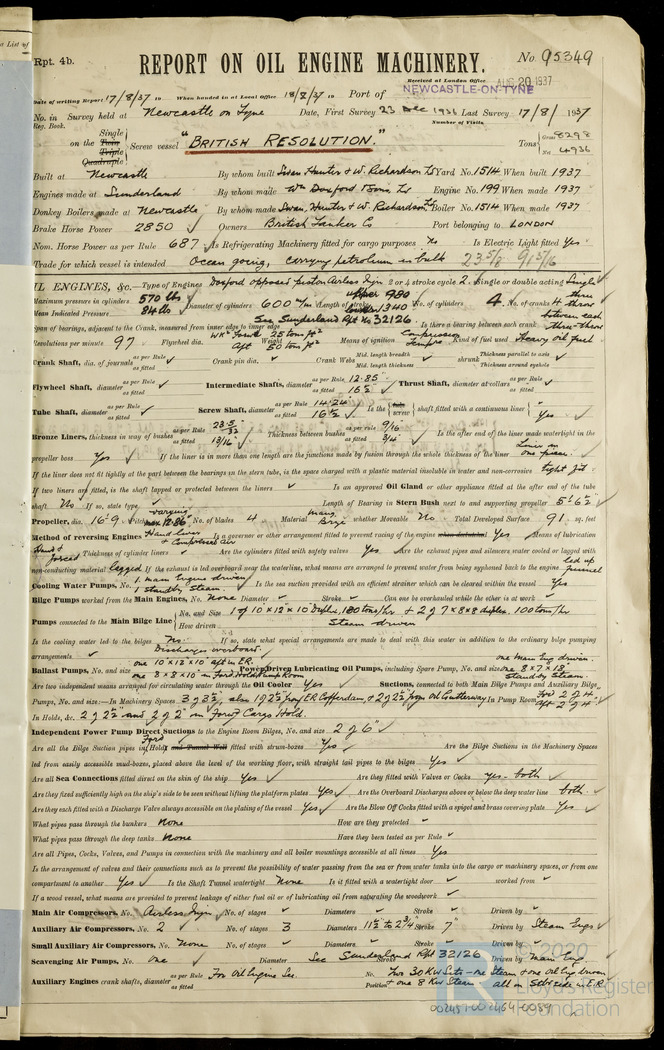 a List of
Rpt. 4b.
REPORT ON OIL ENGINE MACHINERY.
No. 95349
Received at London Office AUG 20 1937
Date of writing Report 17/8/37 19 When handed in at Local Office 18/8/37 19 Port of NEWCASTLE-ON-TYNE
No. in Reg. Book. Survey held at Newcastle on Tyne Date, First Survey 23 Dec 1936 Last Survey 17/8/ 1937
Number of Visits
on the Single Twin Triple Quadruple Screw vessel "BRITISH RESOLUTION." Tons Gross 8298 Net 4936
Built at Newcastle By whom built Swan, Hunter & W. Richardson Ld Yard No. 1514 When built 1937
Engines made at Sunderland By whom made Wm Doxford & Sons, Ld Engine No. 199 When made 1937
Donkey Boilers made at Newcastle By whom made Swan, Hunter & W. Richardson Ld Boiler No. 1514 When made 1937
Brake Horse Power 2850 Owners British Tanker Co Port belonging to LONDON
Nom. Horse Power as per Rule 687 Is Refrigerating Machinery fitted for cargo purposes No Is Electric Light fitted Yes
Trade for which vessel is intended Ocean going, carrying petroleum in bulk 23 5/8 9 15/16
OIL ENGINES, &c.—Type of Engines Doxford opposed piston Airless Injn 2 or 4 stroke cycle 2 Single or double acting Single
Maximum pressure in cylinders 570 lbs Diameter of cylinders 600 m/m Length of stroke upper 980 lower 1340 No. of cylinders 4 No. of cranks 4 three throw
Mean Indicated Pressure 84 lb
Span of bearings, adjacent to the Crank, measured from inner edge to inner edge See Sunderland Rpt No 32126 Is there a bearing between each crank between each three-throw
Revolutions per minute 97 Flywheel dia. Weight Means of ignition Compression Kind of fuel used Heavy oil fuel
Crank Shaft, dia. of journals as per Rule as fitted Crank pin dia. Crank Webs Mid. length breadth Mid. length thickness shrunk Thickness parallel to axis Thickness around eyehole
Flywheel Shaft, diameter as per Rule as fitted Intermediate Shafts, diameter as per Rule 12.85 as fitted 15½" Thrust Shaft, diameter at collars as per Rule as fitted
Tube Shaft, diameter as per Rule as fitted Screw Shaft, diameter as per Rule 14.24 as fitted 16½ Is the tube screw shaft fitted with a continuous liner Yes
Bronze Liners, thickness in way of bushes as per Rule 23.5/32 as fitted 13/16" Thickness between bushes as per rule 9/16 as fitted 3/4" Is the after end of the liner made watertight in the
propeller boss Yes If the liner is in more than one length are the junctions made by fusion through the whole thickness of the liner Liner in one piece.
If the liner does not fit tightly at the part between the bearings in the stern tube, is the space charged with a plastic material insoluble in water and non-corrosive tight fit.
If two liners are fitted, is the shaft lapped or protected between the liners Is an approved Oil Gland or other appliance fitted at the after end of the tube
shaft No If so, state type Length of Bearing in Stern Bush next to and supporting propeller 5'-6½"
Propeller, dia. 16'-9" Pitch varying No. of blades 4 Material Mang Brze whether Moveable No Total Developed Surface 91 sq. feet
Method of reversing Engines Hand lever & compressed air Is a governor or other arrangement fitted to prevent racing of the engine when declutched Yes Means of lubrication
Hand & forced Thickness of cylinder liners Are the cylinders fitted with safety valves Yes Are the exhaust pipes and silencers water cooled or lagged with
non-conducting material lagged If the exhaust is led overboard near the waterline, what means are arranged to prevent water from being syphoned back to the engine led up funnel
Cooling Water Pumps, No. 1 main Engine driven 1 standby steam Is the sea suction provided with an efficient strainer which can be cleared within the vessel Yes
Bilge Pumps worked from the Main Engines, No. None Diameter Stroke Can one be overhauled while the other is at work
Pumps connected to the Main Bilge Line No. and Size 1 of 10x12x10 Duplex, 180 tons/hr + 2 of 7x8x8 duplex, 100 tons/hr
How driven Steam driven
Is the cooling water led to the bilges No. If so, state what special arrangements are made to deal with this water in addition to the ordinary bilge pumping
arrangements Discharges overboard
Ballast Pumps, No. and size one 10x12x10" aft in E.R. one 8x8x10" in Ford Hold Pump Room Power Driven Lubricating Oil Pumps, including Spare Pump, No. and size one Main Eng driven one 8x7x18" standby Steam.
Are two independent means arranged for circulating water through the Oil Cooler Yes Suctions, connected to both Main Bilge Pumps and Auxiliary Bilge
Pumps, No. and size:—In Machinery Spaces 3 of 3½", also 1 of 2½" from E.R. Cofferdam, & 2 of 2½" from Oil Gutterway In Pump Room Ford 2 of 4" Aft 2 of 4"
In Holds, &c. 2 of 2½" and 2 of 2" in Ford Cargo Hold.
Independent Power Pump Direct Suctions to the Engine Room Bilges, No. and size 2 of 6"
Are all the Bilge Suction pipes in Ford Holds and Tunnel Well fitted with strum-boxes Yes Are the Bilge Suctions in the Machinery Spaces
led from easily accessible mud-boxes, placed above the level of the working floor, with straight tail pipes to the bilges Yes
Are all Sea Connections fitted direct on the skin of the ship Yes Are they fitted with Valves or Cocks yes - both
Are they fixed sufficiently high on the ship's side to be seen without lifting the platform plates Yes Are the Overboard Discharges above or below the deep water line both
Are they each fitted with a Discharge Valve always accessible on the plating of the vessel Yes Are the Blow Off Cocks fitted with a spigot and brass covering plate Yes
What pipes pass through the bunkers None How are they protected
What pipes pass through the deep tanks None Have they been tested as per Rule
Are all Pipes, Cocks, Valves, and Pumps in connection with the machinery and all boiler mountings accessible at all times Yes
Is the arrangement of valves and their connections such as to prevent the possibility of water passing from the sea or from water tanks into the cargo or machinery spaces, or from one
compartment to another Yes Is the Shaft Tunnel watertight None Is it fitted with a watertight door worked from
If a wood vessel, what means are provided to prevent leakage of either fuel oil or of lubricating oil from saturating the woodwork
Main Air Compressors, No. Airless Injn No. of stages Diameters Stroke Driven by
Auxiliary Air Compressors, No. 2 No. of stages 3 Diameters 11½" to 2¾" Stroke 7" Driven by Steam Engs
Small Auxiliary Air Compressors, No. None No. of stages Diameters Stroke Driven by
Scavenging Air Pumps, No. one Diameter See Sunderland Rpt 32126 Stroke Driven by main Eng.
Auxiliary Engines crank shafts, diameter as per Rule as fitted For Oil Engine See. No. Two 30 KW Sets - one Steam & one Oil Eng driven
Position + one 8 KW Steam all on Stbd side in E.R.
© 2020
Lloyd's Register
Foundation
002451-002464-0059